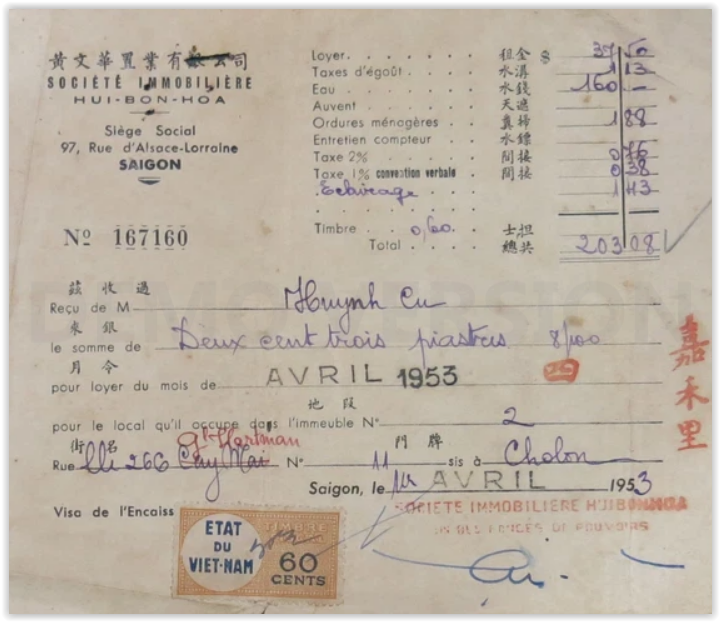 黃文華置業有限公司
SOCIÉTÉ IMMOBILIÈRE
HUI-BON-HOA
Siège Social
97, Rue d'Alsace-Lorraine
SAIGON
Nº 167160
Loyer. 租金 $ 37 50
Taxes d'égoût. 水溝 1 13
Eau 水錢 160 –
Auvent 天遮
Ordures ménagères 糞掃 1 88
Entretien compteur 水鏢
Taxe 2% 間接 0 76
Taxe 1% convention verbale 間接 0 38
Eclairage 1 43
Timbre 0,60 士担
Total 總共 203 08
茲收過
Reçu de M Huynh Cu
來銀
la somme de Deux cent trois piastres 8/100
月令
pour loyer du mois de AVRIL 1953 四
地段
pour le local qu'il occupe dans l'immeuble Nº 2
街名 門牌
Gl Hartman
Rue 266 Cay Mai Nº 11 sis à Cholon
Saigon, le 1er AVRIL 1953
Visa de l'Encaiss
SOCIETE IMMOBILIERE HUIBONHOA
UN DES FONDÉS DE POUVOIRS
ETAT
DU
VIET-NAM
TIMBRE
60
CENTS
嘉禾里
DEMO VERSION